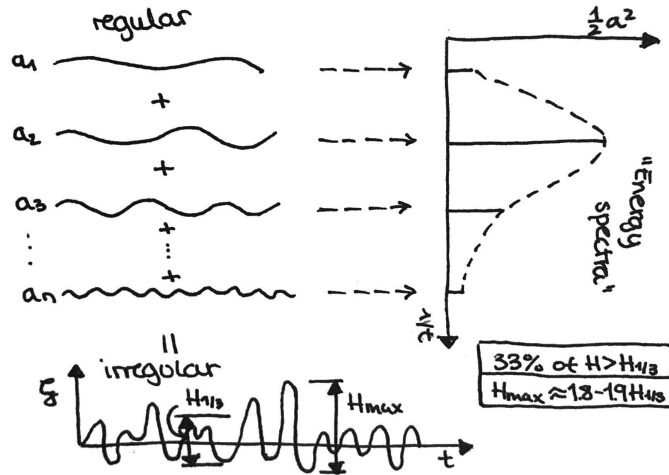 regular
½a²
a₁
+
a₂
+
a₃
+
⋮
⋮
+
aₙ
"Energy
spectra"
1/t
=
irregular
ζ
H₁/₃
Hmax
t
33% of H>H₁/₃
Hmax ≈ 1.8-1.9H₁/₃